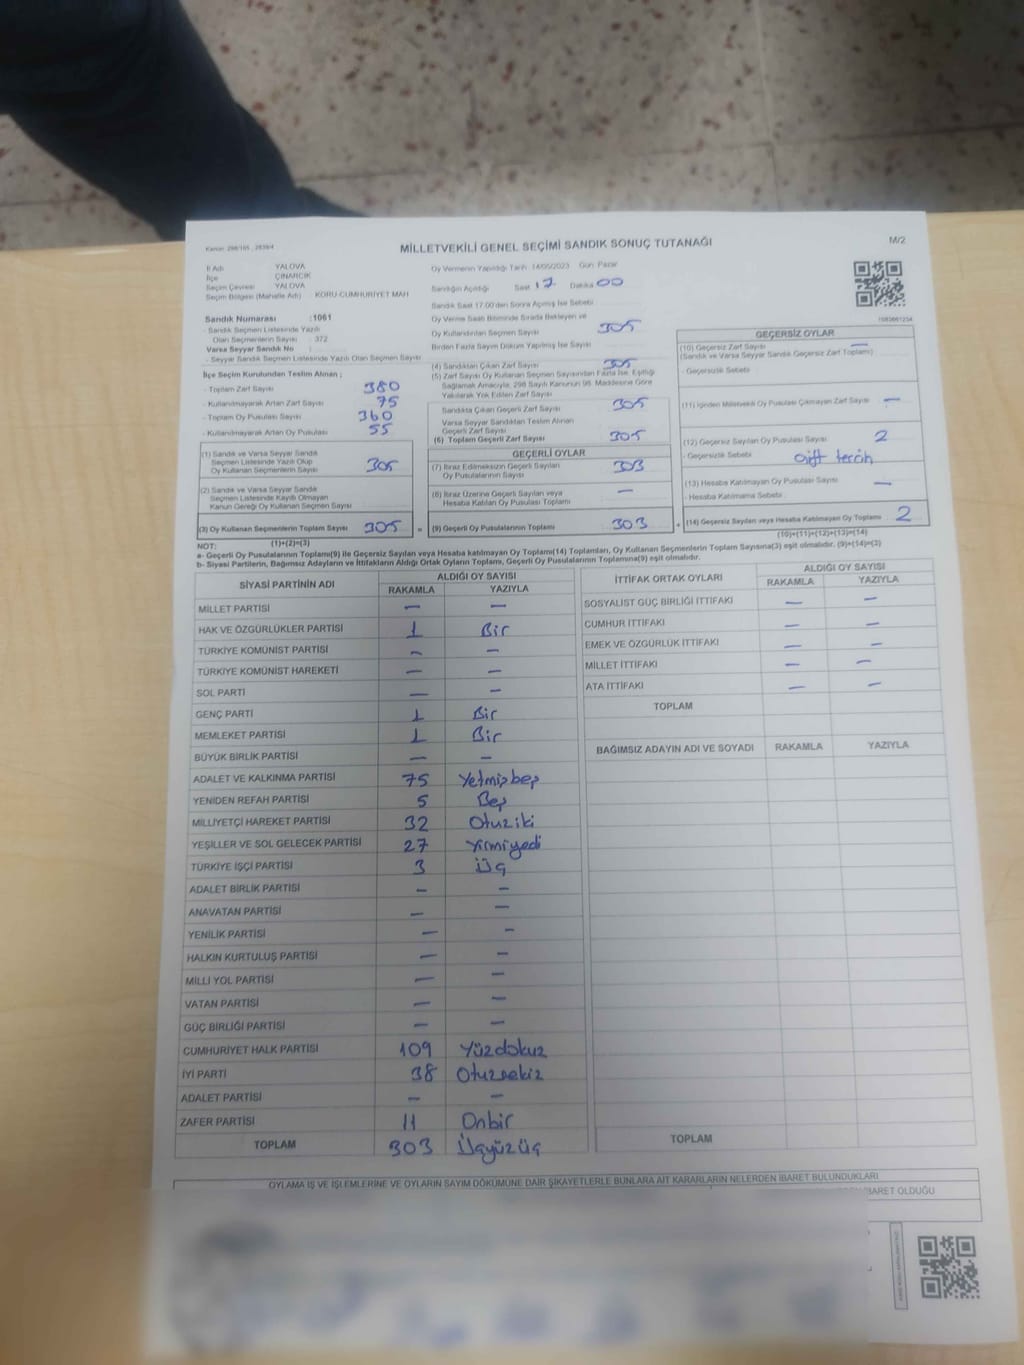 Kanun: 298/105 , 2839/4
MİLLETVEKİLİ GENEL SEÇİMİ SANDIK SONUÇ TUTANAĞI
M/2
İl Adı YALOVA
İlçe ÇINARCIK
Seçim Çevresi YALOVA
Seçim Bölgesi (Mahalle Adı) KORU-CUMHURİYET MAH
Sandık Numarası :1061
- Sandık Seçmen Listesinde Yazılı
Olan Seçmenlerin Sayısı : 372
Varsa Seyyar Sandık No
- Seyyar Sandık Seçmen Listesinde Yazılı Olan Seçmen Sayısı
İlçe Seçim Kurulundan Teslim Alınan ;
- Toplam Zarf Sayısı 380
- Kullanılmayarak Artan Zarf Sayısı 75
- Toplam Oy Pusulası Sayısı 360
- Kullanılmayarak Artan Oy Pusulası 55
(1) Sandık ve Varsa Seyyar Sandık
Seçmen Listesinde Yazılı Olup
Oy Kullanan Seçmenlerin Sayısı 305
(2) Sandık ve Varsa Seyyar Sandık
Seçmen Listesinde Kayıtlı Olmayan
Kanun Gereği Oy Kullanan Seçmen Sayısı
(3) Oy Kullanan Seçmenlerin Toplam Sayısı 305 =
(1)+(2)=(3)
Oy Vermenin Yapıldığı Tarih: 14/05/2023 Gün: Pazar
Sandığın Açıldığı Saat 17 Dakika 00
Sandık Saat 17:00'den Sonra Açılmış İse Sebebi
Oy Verme Saati Bitiminde Sırada Bekleyen ve
Oy Kullandırılan Seçmen Sayısı 305
Birden Fazla Sayım Döküm Yapılmış İse Sayısı
(4) Sandıktan Çıkan Zarf Sayısı 305
(5) Zarf Sayısı Oy Kullanan Seçmen Sayısından Fazla İse, Eşitliği
Sağlamak Amacıyla, 298 Sayılı Kanunun 98. Maddesine Göre
Yakılarak Yok Edilen Zarf Sayısı
Sandıkta Çıkan Geçerli Zarf Sayısı 305
Varsa Seyyar Sandıktan Teslim Alınan
Geçerli Zarf Sayısı
(6) Toplam Geçerli Zarf Sayısı 305
GEÇERLİ OYLAR
(7) İtiraz Edilmeksizin Geçerli Sayılan
Oy Pusulalarının Sayısı 303
(8) İtiraz Üzerine Geçerli Sayılan veya
Hesaba Katılan Oy Pusulası Toplamı —
(9) Geçerli Oy Pusulalarının Toplamı 303 +
GEÇERSİZ OYLAR
(10) Geçersiz Zarf Sayısı —
(Sandık ve Varsa Seyyar Sandık Geçersiz Zarf Toplamı)
- Geçersizlik Sebebi
(11) İçinden Milletvekili Oy Pusulası Çıkmayan Zarf Sayısı —
(12) Geçersiz Sayılan Oy Pusulası Sayısı 2
- Geçersizlik Sebebi Çift tercih
(13) Hesaba Katılmayan Oy Pusulası Sayısı —
- Hesaba Katılmama Sebebi
(14) Geçersiz Sayılan veya Hesaba Katılmayan Oy Toplamı 2
(10)+(11)+(12)+(13)=(14)
NOT:
a- Geçerli Oy Pusulalarının Toplamı(9) ile Geçersiz Sayılan veya Hesaba katılmayan Oy Toplamı(14) Toplamları, Oy Kullanan Seçmenlerin Toplam Sayısına(3) eşit olmalıdır. (9)+(14)=(3)
b- Siyasi Partilerin, Bağımsız Adayların ve İttifakların Aldığı Ortak Oyların Toplamı, Geçerli Oy Pusulalarının Toplamına(9) eşit olmalıdır.
SİYASİ PARTİNİN ADI ALDIĞI OY SAYISI
RAKAMLA YAZIYLA
MİLLET PARTİSİ — —
HAK VE ÖZGÜRLÜKLER PARTİSİ 1 Bir
TÜRKİYE KOMÜNİST PARTİSİ — —
TÜRKİYE KOMÜNİST HAREKETİ — —
SOL PARTİ — —
GENÇ PARTİ 1 Bir
MEMLEKET PARTİSİ 1 Bir
BÜYÜK BİRLİK PARTİSİ — —
ADALET VE KALKINMA PARTİSİ 75 Yetmişbeş
YENİDEN REFAH PARTİSİ 5 Beş
MİLLİYETÇİ HAREKET PARTİSİ 32 Otuziki
YEŞİLLER VE SOL GELECEK PARTİSİ 27 Yirmiyedi
TÜRKİYE İŞÇİ PARTİSİ 3 Üç
ADALET BİRLİK PARTİSİ — —
ANAVATAN PARTİSİ — —
YENİLİK PARTİSİ — —
HALKIN KURTULUŞ PARTİSİ — —
MİLLİ YOL PARTİSİ — —
VATAN PARTİSİ — —
GÜÇ BİRLİĞİ PARTİSİ — —
CUMHURİYET HALK PARTİSİ 109 Yüzdokuz
İYİ PARTİ 38 Otuzsekiz
ADALET PARTİSİ — —
ZAFER PARTİSİ 11 Onbir
TOPLAM 303 Üçyüzüç
İTTİFAK ORTAK OYLARI ALDIĞI OY SAYISI
RAKAMLA YAZIYLA
SOSYALİST GÜÇ BİRLİĞİ İTTİFAKI — —
CUMHUR İTTİFAKI — —
EMEK VE ÖZGÜRLÜK İTTİFAKI — —
MİLLET İTTİFAKI — —
ATA İTTİFAKI — —
TOPLAM
BAĞIMSIZ ADAYIN ADI VE SOYADI RAKAMLA YAZIYLA
TOPLAM
OYLAMA İŞ VE İŞLEMLERİNE VE OYLARIN SAYIM DÖKÜMÜNE DAİR ŞİKAYETLERLE BUNLARA AİT KARARLARIN NELERDEN İBARET BULUNDUKLARI
İBARET OLDUĞU